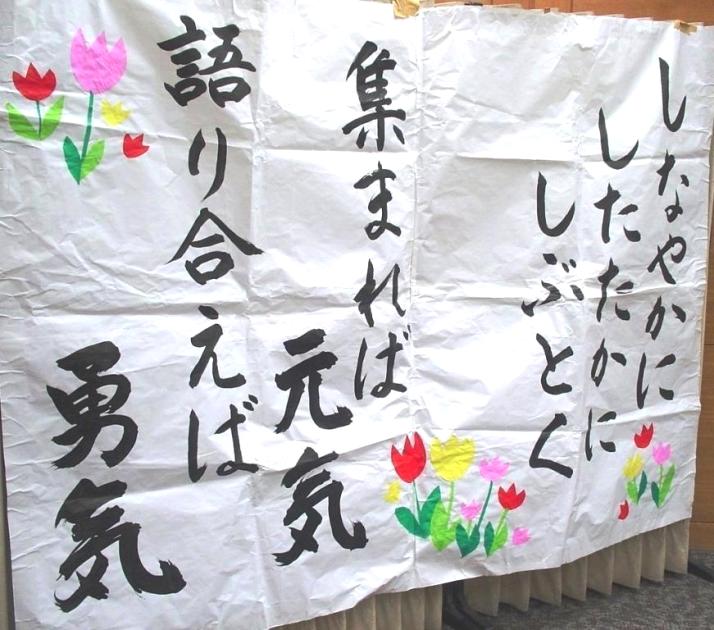 しなやかに
したたかに
しぶとく
集まれば
元気
語り合えば
勇気